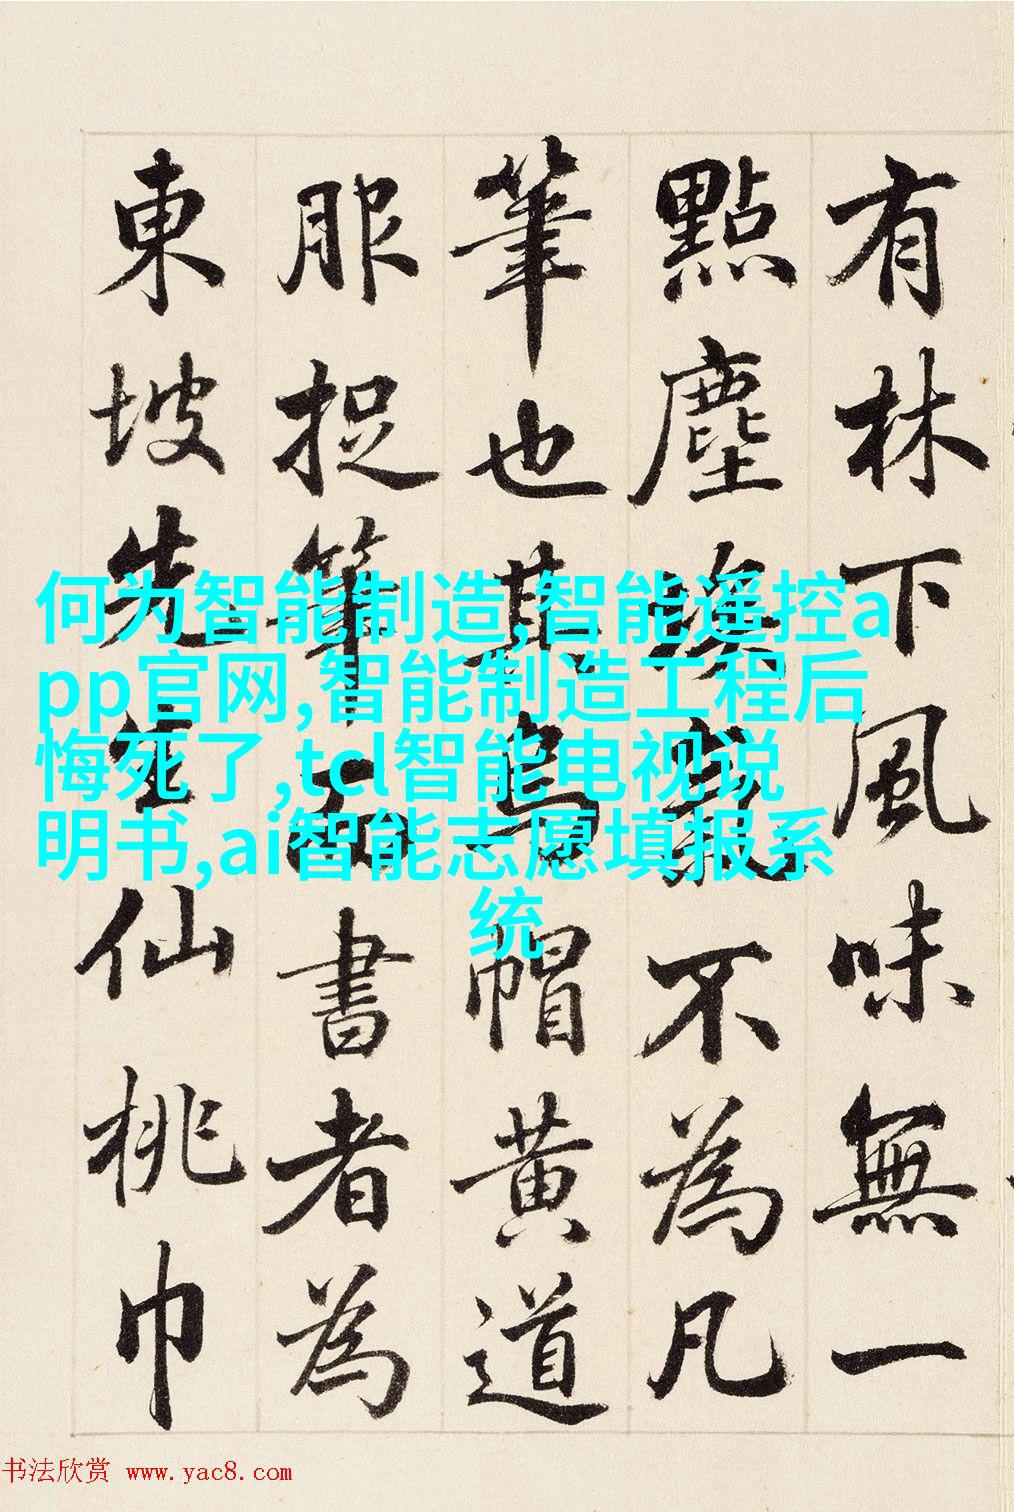 有林下風味無一
點塵埃氣不為凡
筆也其烏帽黃道
服捉筆而書者為
東坡先生仙桃巾
何为智能制造,智能遥控a
pp官网,智能制造工程后
悔死了,tcl智能电视说
明书,ai智能志愿填报系
统
书法欣赏 www.yac8.com